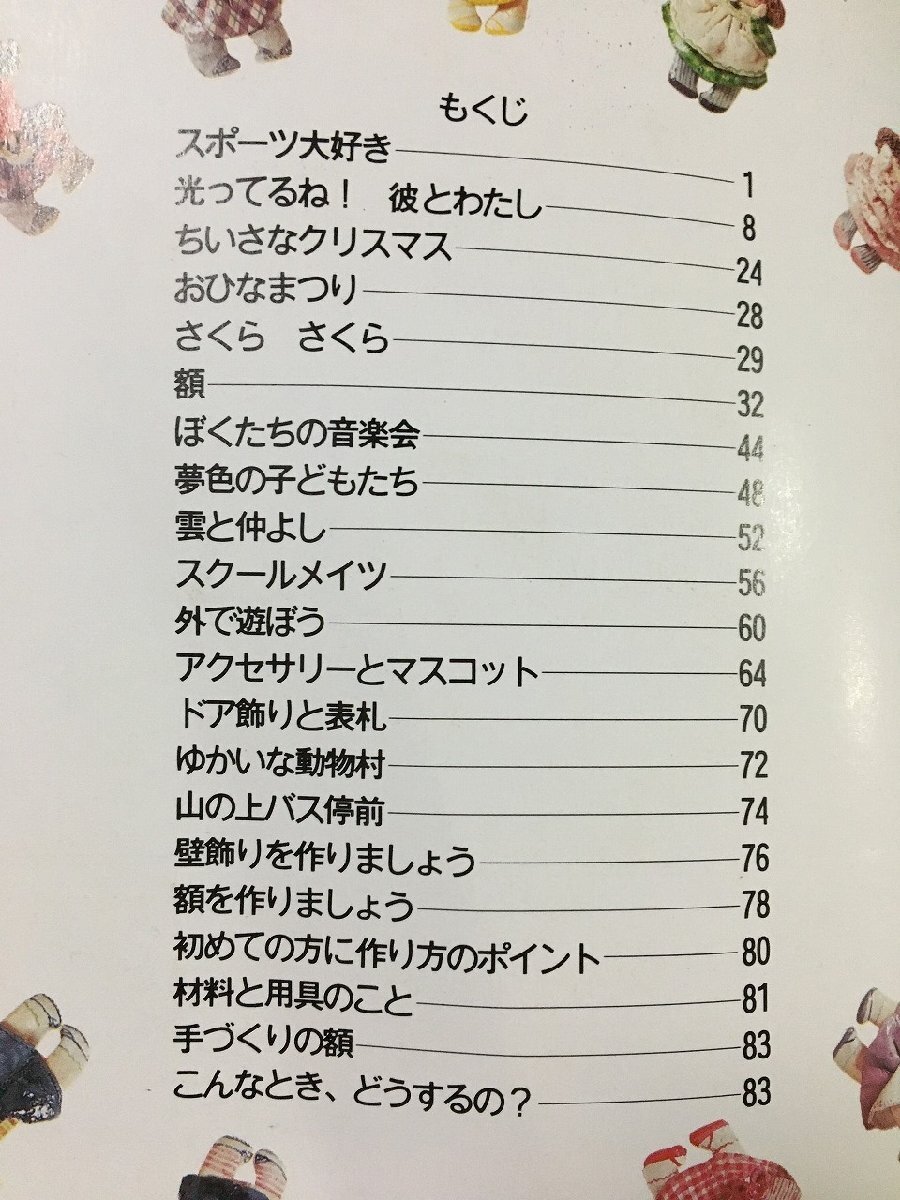 もくじ
スポーツ大好き 1
光ってるね！ 彼とわたし 8
ちいさなクリスマス 24
おひなまつり 28
さくら さくら 29
額 32
ぼくたちの音楽会 44
夢色の子どもたち 48
雲と仲よし 52
スクールメイツ 56
外で遊ぼう 60
アクセサリーとマスコット 64
ドア飾りと表札 70
ゆかいな動物村 72
山の上バス停前 74
壁飾りを作りましょう 76
額を作りましょう 78
初めての方に作り方のポイント 80
材料と用具のこと 81
手づくりの額 83
こんなとき、どうするの？ 83